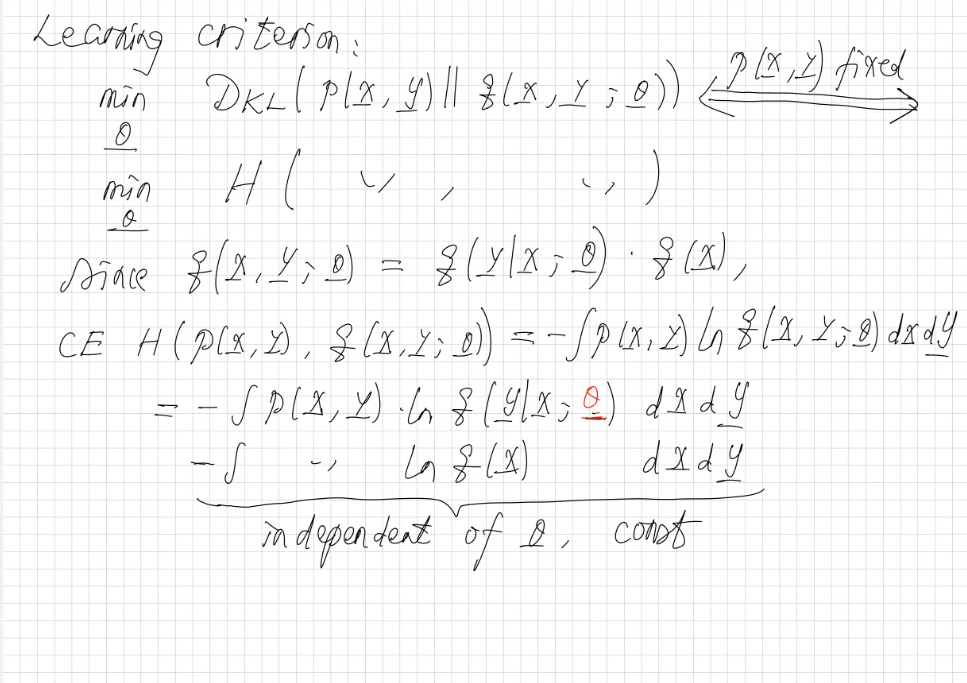 Learning criterion:
min D_KL( p(x, y) || q(x, y ; θ)) <=> p(x, y) fixed
θ
min H( 〃 , 〃 )
θ
Since q(x, y; θ) = q(y|x; θ) · q(x),
CE H(p(x, y), q(x, y; θ)) = -∫p(x, y) ln q(x, y; θ) dx dy
= - ∫ p(x, y) · ln q(y|x; θ) dx dy
- ∫ 〃 ln q(x) dx dy
independent of θ, const